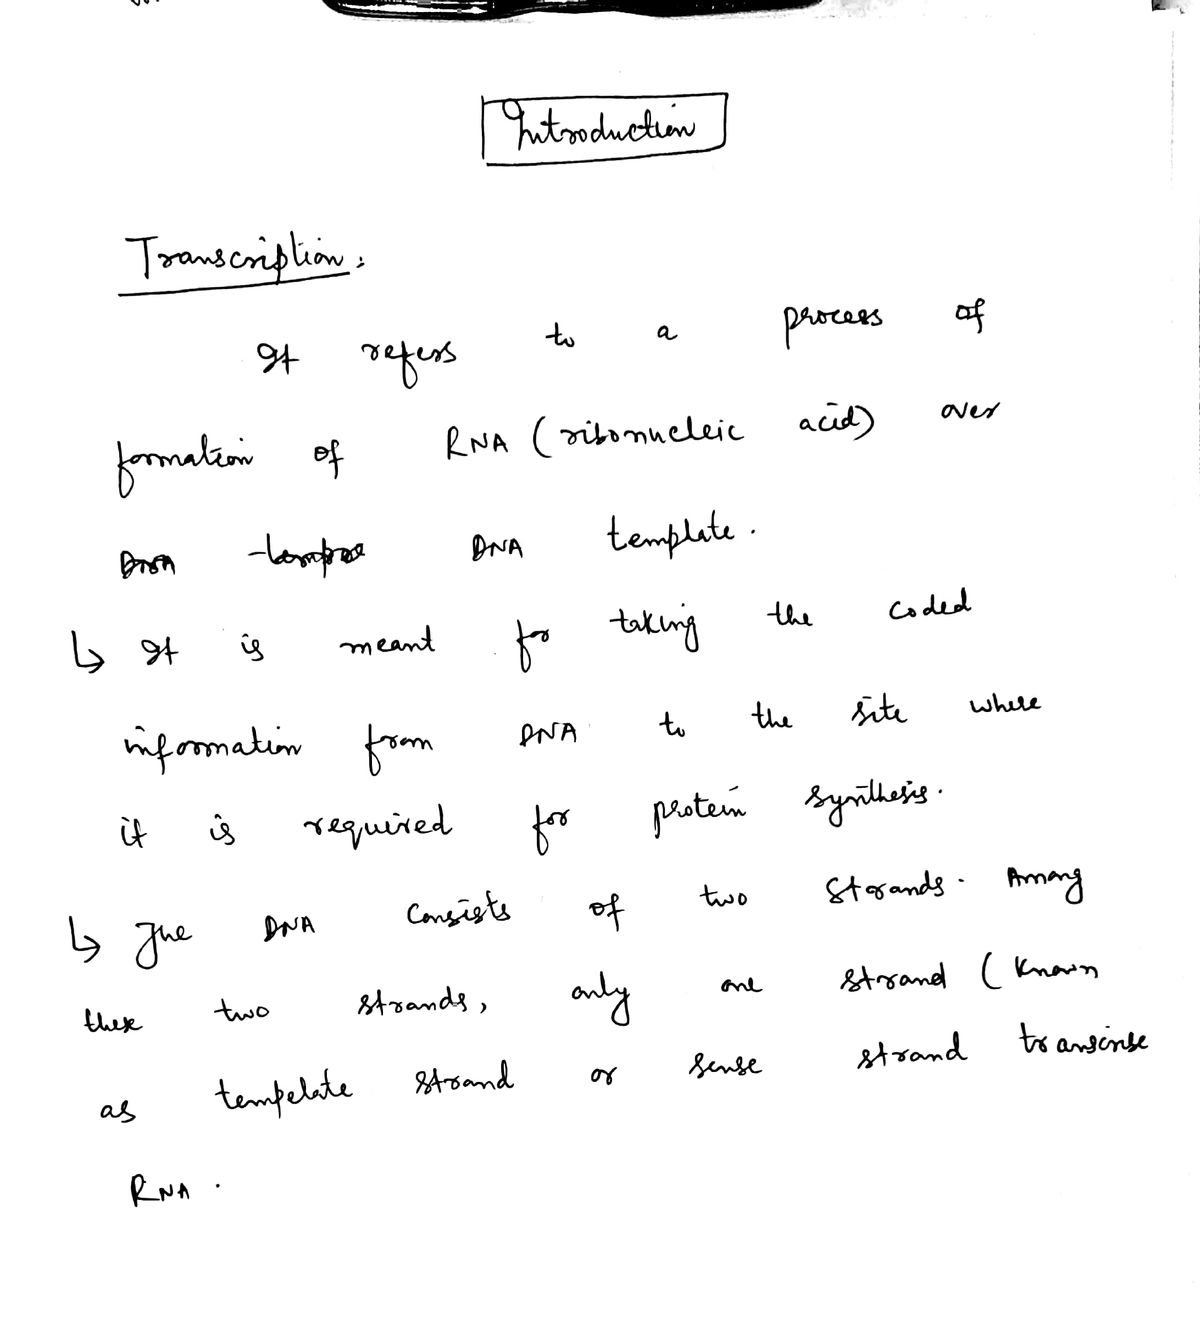 Introduction
Transcription:
It refers to a process of
formation of RNA (ribonucleic acid) over
DNA template.
↳ It is meant for taking the coded
information from DNA to the site where
it is required for protein synthesis.
↳ The DNA consists of two strands. Among
these two strands, only one strand (known
as tempelate strand or sense strand transcribe
RNA.